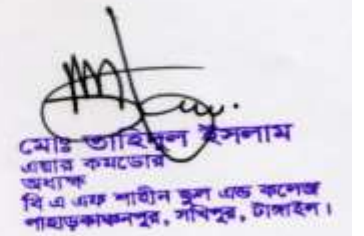 মোঃ তাহিদুল ইসলাম
এয়ার কমডোর
অধ্যক্ষ
বি এ এফ শাহীন স্কুল এন্ড কলেজ
পাহাড়কাঞ্চনপুর, সখিপুর, টাঙ্গাইল।